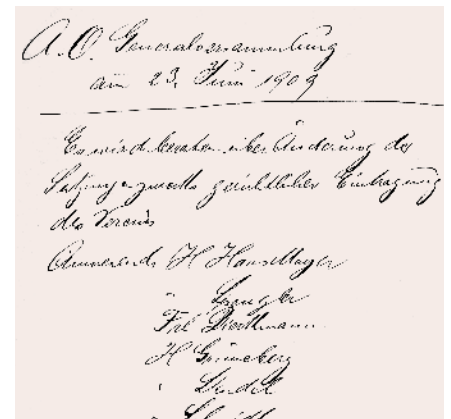 A. O. Generalversammlung
am 23. Juni 1909
Es wird beraten über Änderung der
Satzungen zwecks gerichtlicher Eintragung
des Vereins
Anwesend: H Hans Mayer
"
Frl.
H Grüneberg
"
"